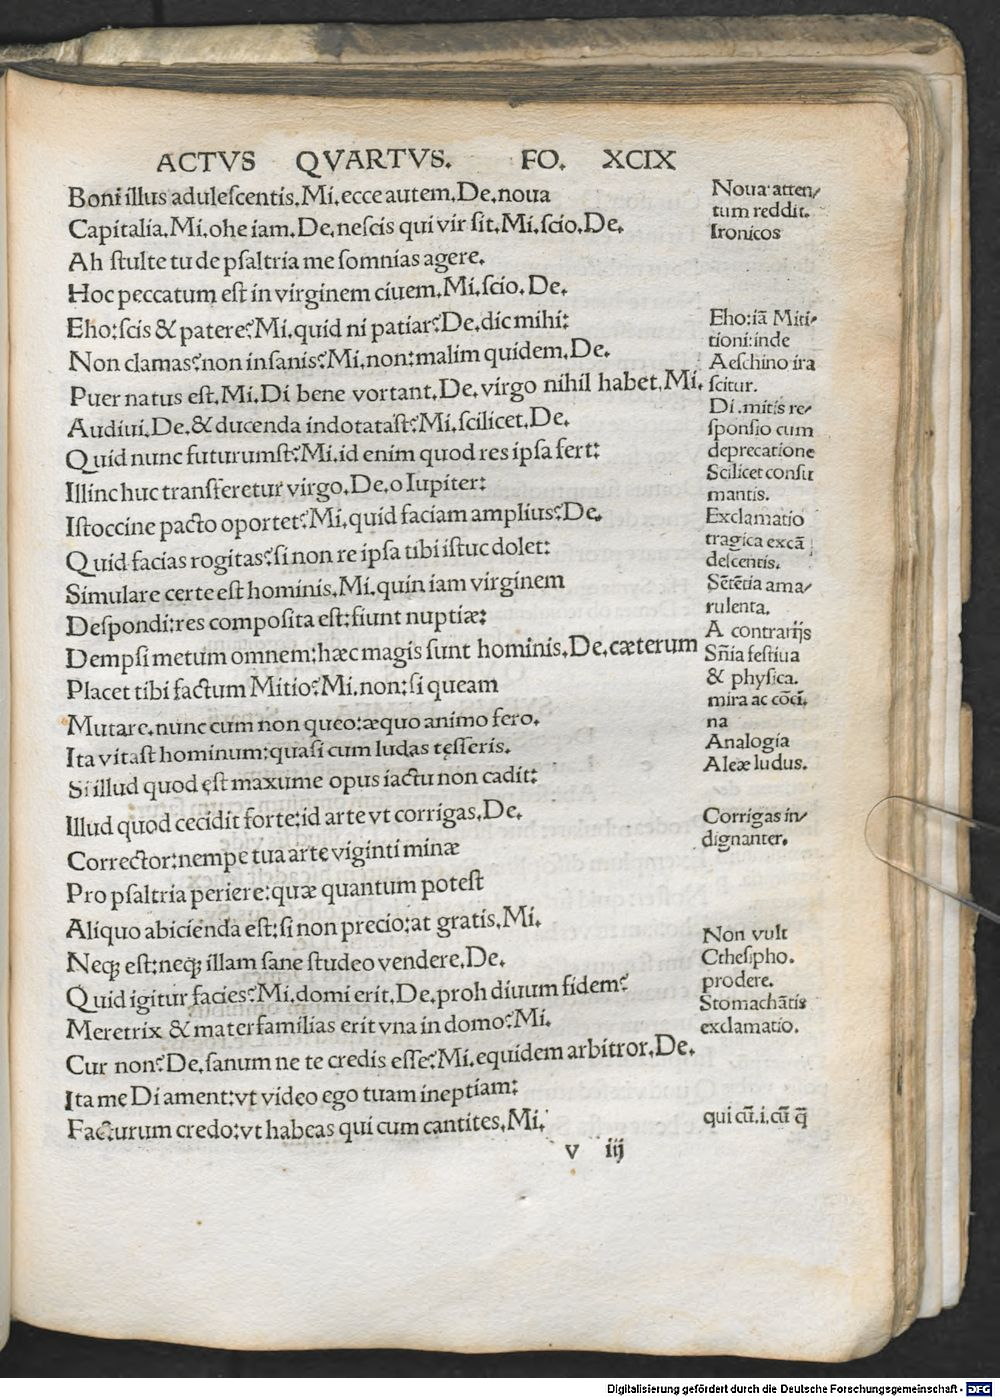 ACTVS QVARTVS. FO. XCIX
Boni illius aduleſcentis. Mi. ecce autem. De. noua
Capitalia. Mi. ohe iam. De. neſcis qui vir ſit. Mi. ſcio. De.
Ah ſtulte tu de pſaltria me ſomnias agere.
Hoc peccatum eſt in virginem ciuem. Mi. ſcio. De.
Eho: ſcis & patere? Mi. quid ni patiar? De. dic mihi:
Non clamas? non inſanis? Mi. non: malim quidem. De.
Puer natus eſt. Mi. Di bene vortant. De. virgo nihil habet. Mi.
Audiui. De. & ducenda indotata'ſt? Mi. ſcilicet. De.
Quid nunc futurumſt? Mi. id enim quod res ipſa fert:
Illinc huc transferetur virgo. De. o Iupiter:
Iſtoccine pacto oportet? Mi. quid faciam amplius? De.
Quid facias rogitas? ſi non re ipſa tibi iſtuc dolet:
Simulare certe eſt hominis. Mi. quin iam virginem
Deſpondi: res compoſita eſt: fiunt nuptiæ:
Dempſi metum omnem: hæc magis ſunt hominis. De. cæterum
Placet tibi factum Mitio? Mi. non: ſi queam
Mutare. nunc cum non queo: æquo animo fero.
Ita vitaſt hominum: quaſi cum ludas teſſeris.
Si illud quod eſt maxume opus iactu non cadit:
Illud quod cecidit forte: id arte vt corrigas. De.
Corrector: nempe tua arte viginti minæ
Pro pſaltria periere: quæ quantum poteſt
Aliquo abicienda eſt: ſi non precio: at gratis. Mi.
Neqꝫ eſt: neqꝫ illam ſane ſtudeo vendere. De.
Quid igitur facies? Mi. domi erit. De. proh diuum fidem?
Meretrix & materfamilias erit vna in domo? Mi.
Cur non? De. ſanum ne te credis eſſe? Mi. equidem arbitror. De.
Ita me Di ament: vt video ego tuam ineptiam:
Facturum credo: vt habeas qui cum cantites. Mi.
v iij
Noua: atten/
tum reddit.
Ironicos
Eho: iã Miti/
tioni: inde
Aeſchino ira
ſcitur.
Di. mitis re/
ſponſio cum
deprecatione
Scilicet confir
mantis.
Exclamatio
tragica excã
deſcentis.
Sẽtẽtia ama/
rulenta.
A contrarijs
Sñia feſtiua
& phyſica.
mira ac cõci.
na
Analogia
Aleæ ludus.
Corrigas in/
dignanter.
Non vult
Ctheſipho.
prodere.
Stomachãtis
exclamatio.
qui cũ. i. cũ q̃
Digitalisierung gefördert durch die Deutsche Forschungsgemeinschaft - DFG